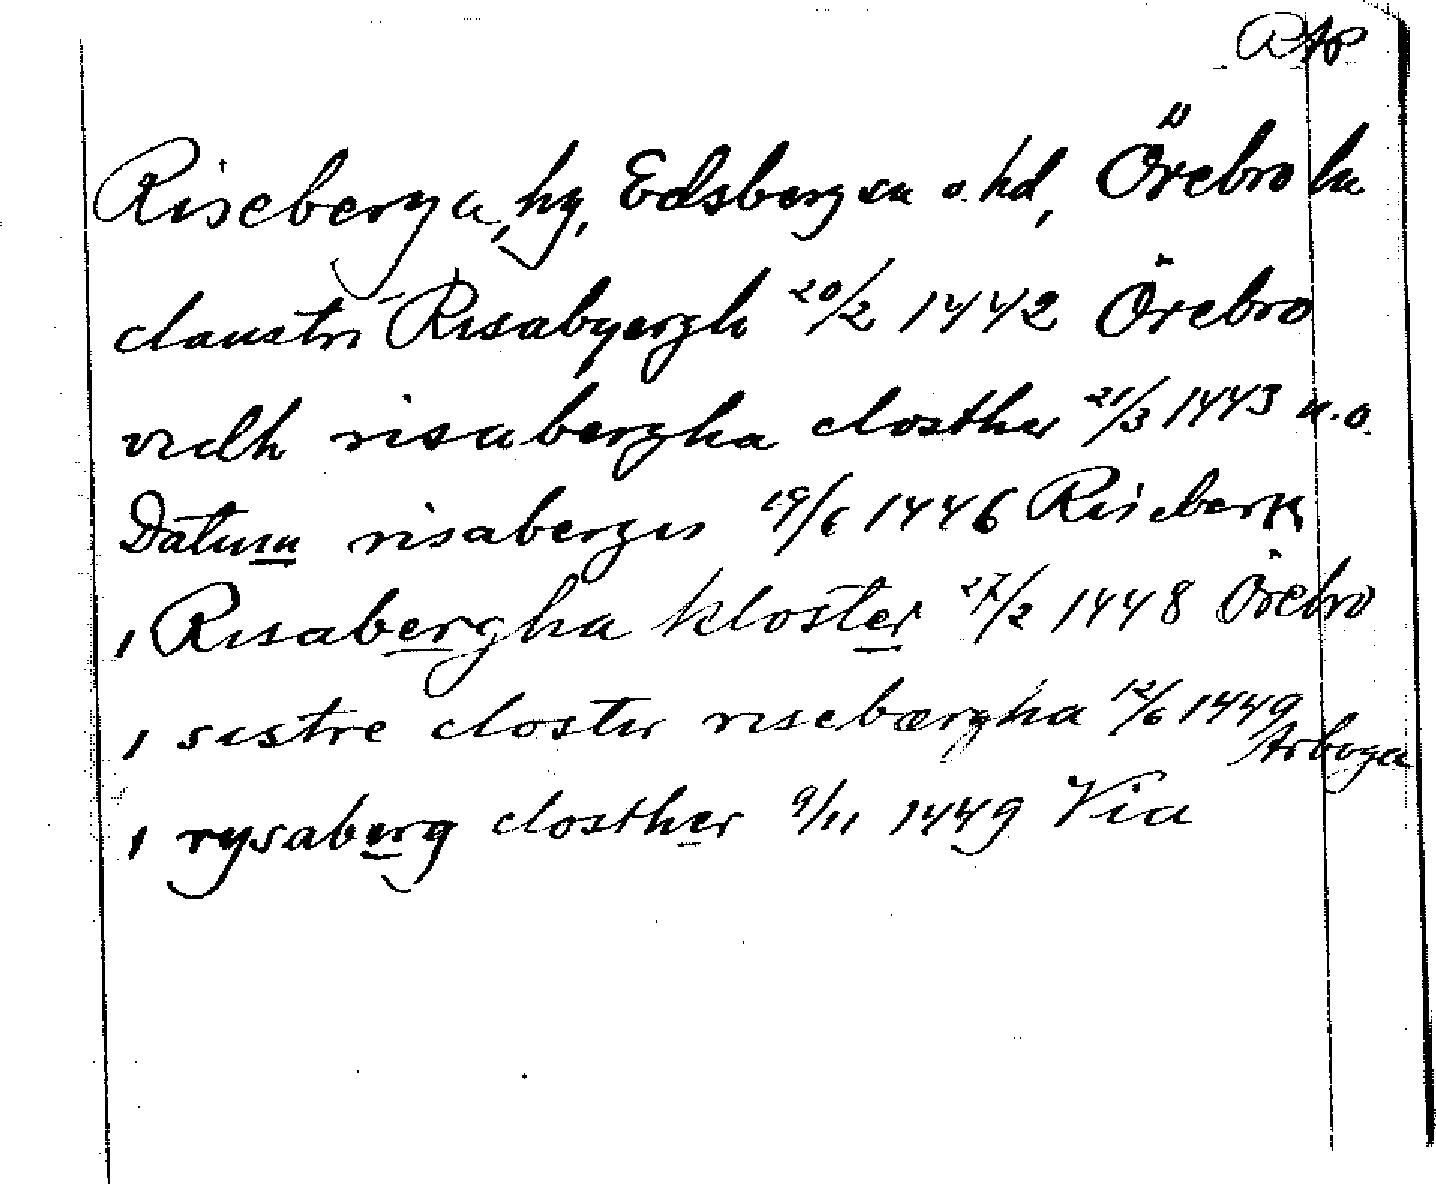 RAp
Riseberga, hg, Edsbergsn o. hd, Örebro ln
claustri Risabyergh 20/2 1442 Örebro
vidh risabergha closther 21/3 1443 u.o.
Datum risabergis 19/6 1446 Riseberg
i Risabergha kloster 27/2 1448 Örebro
i sistre closter risebærgha 12/6 1449
Arboga
i rysaberg closther 9/11 1449 Via